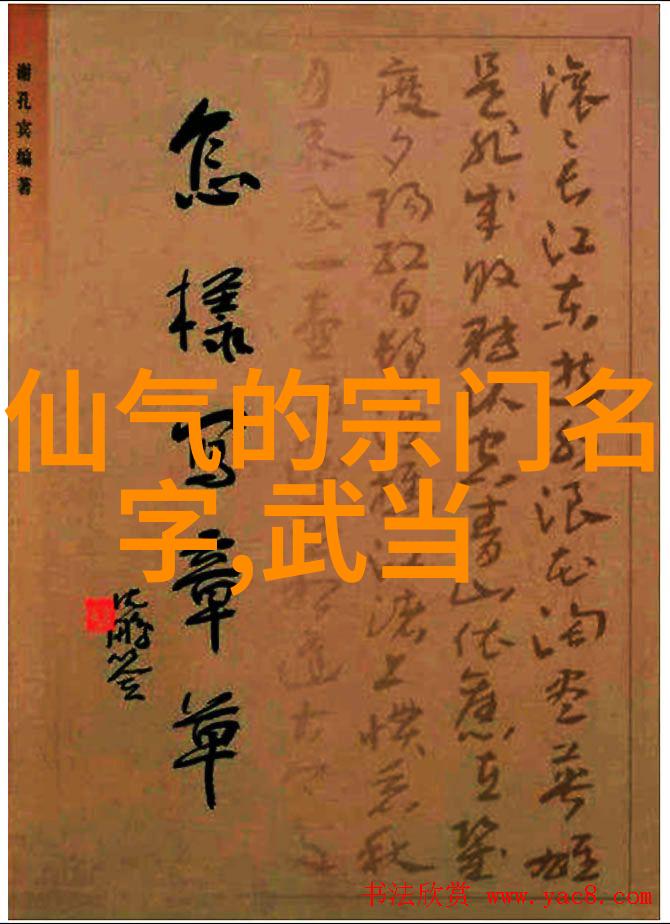 仙气的宗门名
字,武当
滚滚长江东逝水浪花淘尽英雄
是非成败转头空青山依旧在几
度夕阳红白发渔樵江渚上惯看秋
月春风一壶
怎樣写章草
沈鹏签
谢孔宾编著
书法欣赏 www.yac8.com